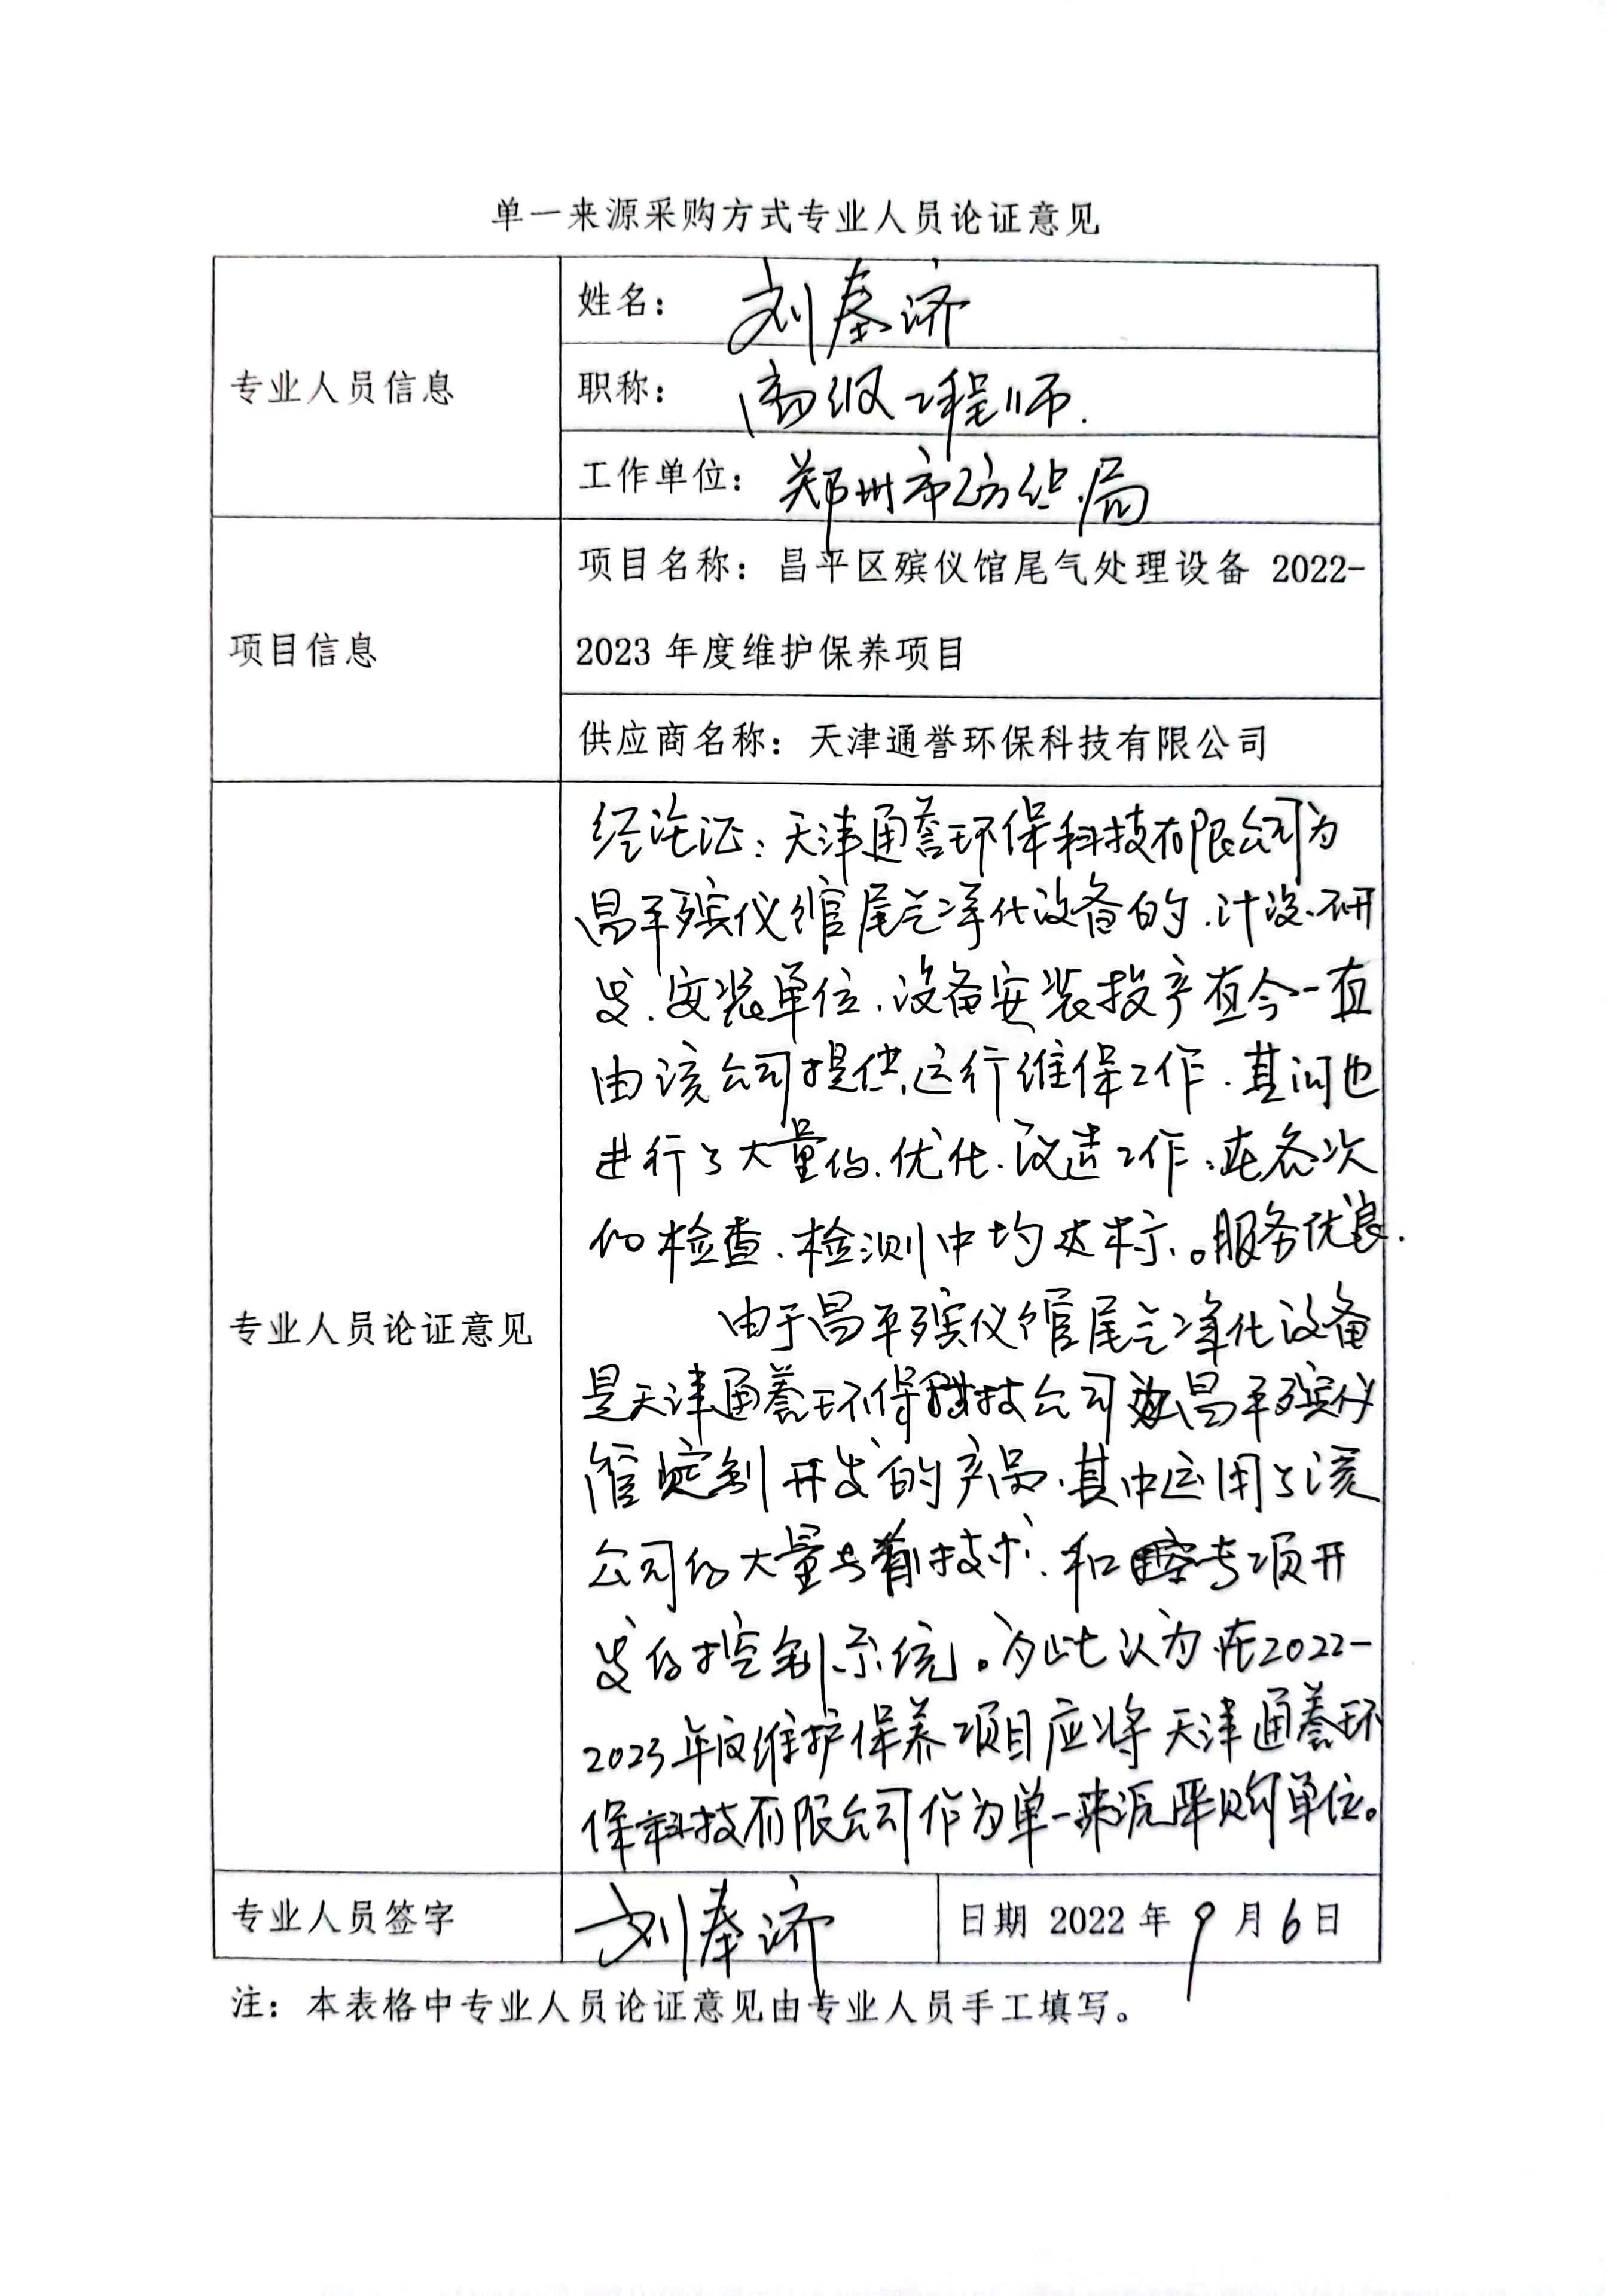 单一来源采购方式专业人员论证意见
专业人员信息
姓名：刘奉济
职称：高级工程师.
工作单位：郑州市纺织局
项目信息
项目名称：昌平区殡仪馆尾气处理设备 2022-
2023 年度维护保养项目
供应商名称：天津通誉环保科技有限公司
专业人员论证意见
经论证：天津通誉环保科技有限公司为
昌平殡仪馆尾气净化设备的、计设、研
发、安装单位、设备安装投产直今一直
由该公司提供运行维保工作、其间也
进行了大量的、优化、改造工作、在各次
的检查、检测中均达标、。服务优良.
由于昌平殡仪馆尾气净化设备
是天津通誉环保科技公司为昌平殡仪
馆定制开发的产品、其中运用了该
公司的大量专有技术、和专项开
发的控制系统。为此认为在2022-
2023年度维护保养项目应将天津通誉环
保科技有限公司作为单一来源采购单位。
专业人员签字
刘奉济
日期 2022 年 9 月 6 日
注：本表格中专业人员论证意见由专业人员手工填写。